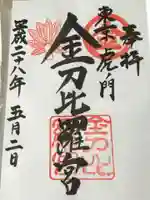 奉拝
東京虎ノ門
金刀比羅宮
平成二十八年五月二日